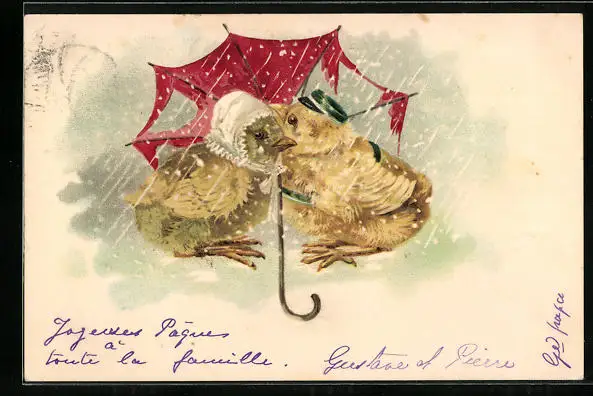 Joyeuses Pâques
à
toute la famille.
Gustave et Pierre